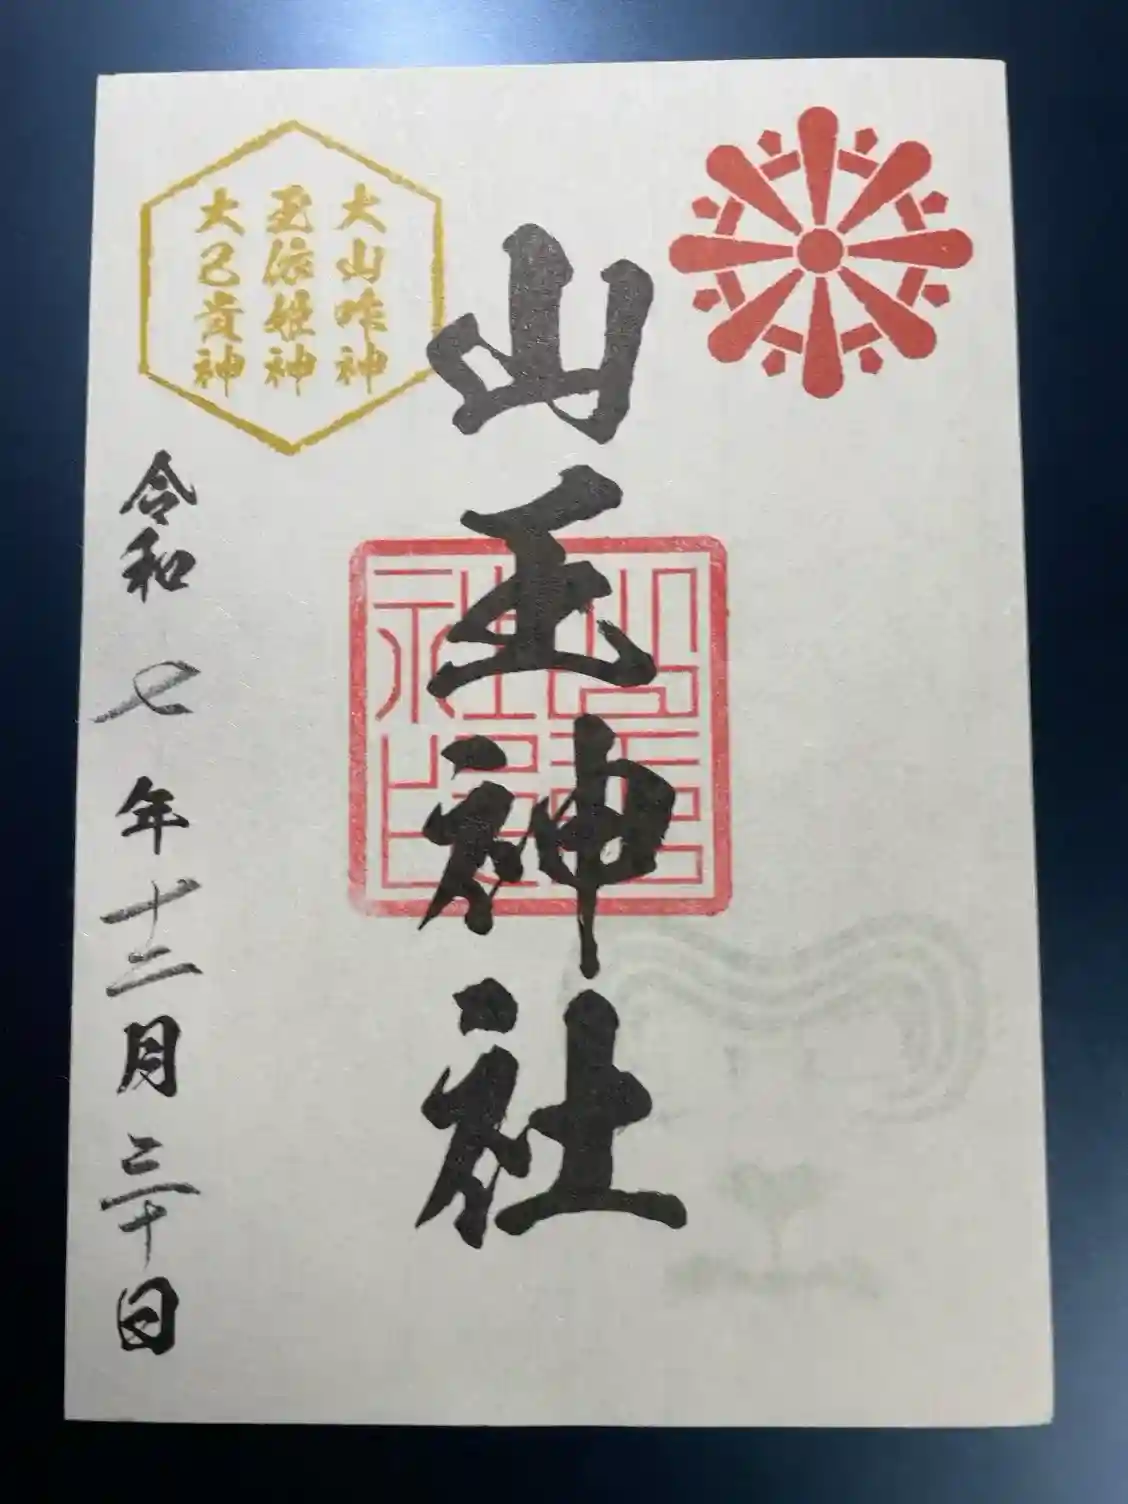 山王神社
大山咋神
玉依姫神
大己貴神
令和七年十二月三十日
山王神社之印